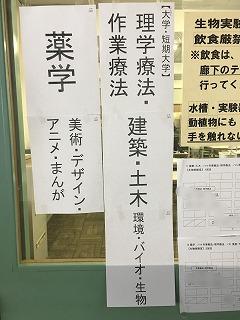 【大学・短期大学】
理学療法・
作業療法
建築・土木
環境・バイオ・生物
薬学
美術・デザイン・
アニメ・まんが
生物実験
飲食厳禁
※飲食は、
廊下のテ
行ってく
水槽・実験
動植物にも
手を触れない